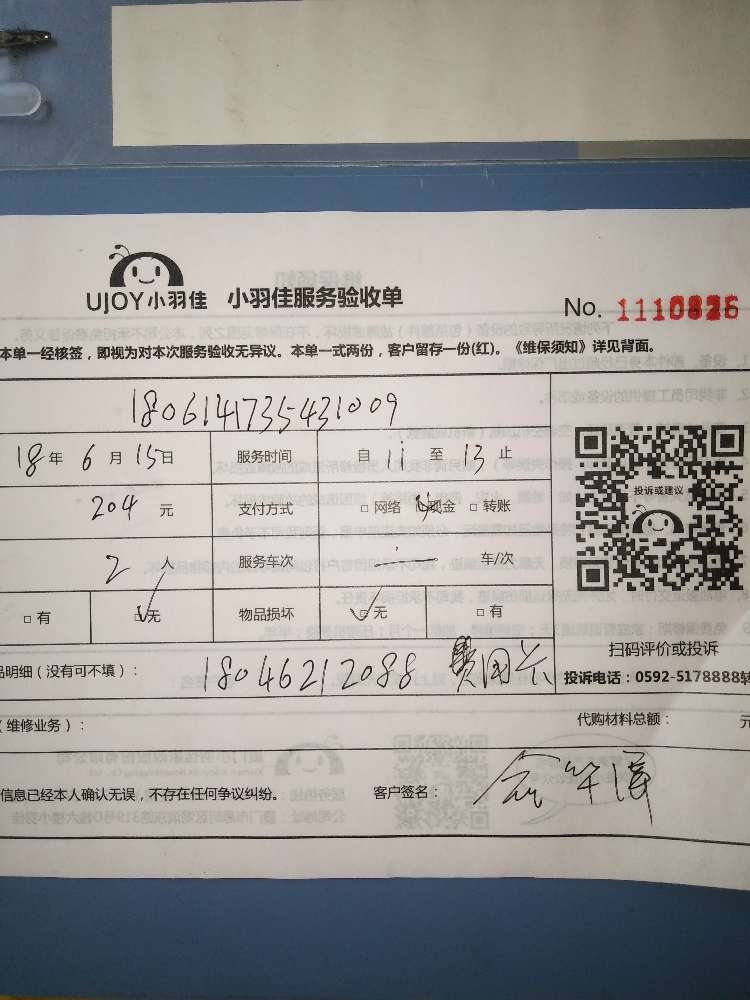 UJOY小羽佳 小羽佳服务验收单
No. 1110826
本单一经核签，即视为对本次服务验收无异议。本单一式两份，客户留存一份(红)。《维保须知》详见背面。
1806141735431009
18年 6月 15日 服务时间 自 11 至 13 止
204 元 支付方式 □ 网络 □ 现金 □ 转账
投诉或建议
2 人 服务车次 一 车/次
□ 有 □ 无 物品损坏 □ 无 □ 有
扫码评价或投诉
品明细（没有可不填）： 18046212088
投诉电话：0592-5178888转
（维修业务）： 代购材料总额： 元
信息已经本人确认无误，不存在任何争议纠纷。 客户签名：